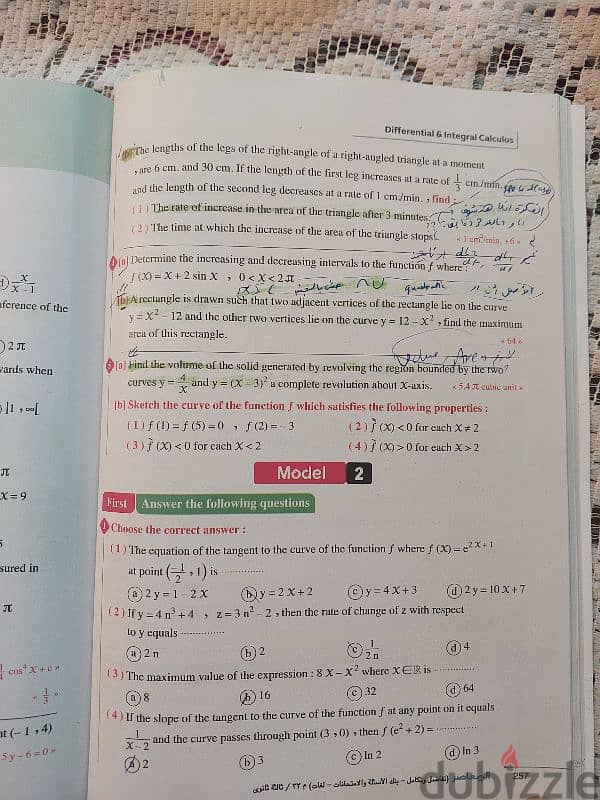 Differential & Integral Calculus
(b) The lengths of the legs of the right-angle of a right-angled triangle at a moment
, are 6 cm. and 30 cm. If the length of the first leg increases at a rate of 1/3 cm./min.
and the length of the second leg decreases at a rate of 1 cm./min. , find :
(1) The rate of increase in the area of the triangle after 3 minutes.
(2) The time at which the increase of the area of the triangle stops.
« 1 cm²/min. , 6 »
4 [a] Determine the increasing and decreasing intervals to the function f where :
f (X) = X + 2 sin X , 0 < X < 2π
[b] A rectangle is drawn such that two adjacent vertices of the rectangle lie on the curve
y = X² – 12 and the other two vertices lie on the curve y = 12 – X² , find the maximum
area of this rectangle.
« 64 »
5 [a] Find the volume of the solid generated by revolving the region bounded by the two
curves y = 4/X and y = (X – 3)² a complete revolution about X-axis.
« 5.4 π cubic unit »
[b] Sketch the curve of the function f which satisfies the following properties :
(1) f (1) = f (5) = 0 , f (2) = – 3
(2) f̋ (X) < 0 for each X ≠ 2
(3) f́ (X) < 0 for each X < 2
(4) f́ (X) > 0 for each X > 2
Model 2
First Answer the following questions
1 Choose the correct answer :
(1) The equation of the tangent to the curve of the function f where f (X) = e^(2X+1)
at point (–1/2 , 1) is ..............
(a) 2 y = 1 – 2 X (b) y = 2 X + 2 (c) y = 4 X + 3 (d) 2 y = 10 X + 7
(2) If y = 4 n³ + 4 , z = 3 n² – 2 , then the rate of change of z with respect
to y equals ..............
(a) 2 n (b) 2 (c) 1/2n (d) 4
(3) The maximum value of the expression : 8 X – X² where X ∈ ℝ is ..............
(a) 8 (b) 16 (c) 32 (d) 64
(4) If the slope of the tangent to the curve of the function f at any point on it equals
1/(X–2) and the curve passes through point (3 , 0) , then f (e² + 2) = ..............
(a) 2 (b) 3 (c) ln 2 (d) ln 3
257
X/(X–1)
nference of the
2 π
vards when
) ]1 , ∞[
π
X = 9
sured in
π
cos⁴ X + c »
« 1/3 »
at (– 1 , 4)
5 y – 6 = 0 »
dubizzle